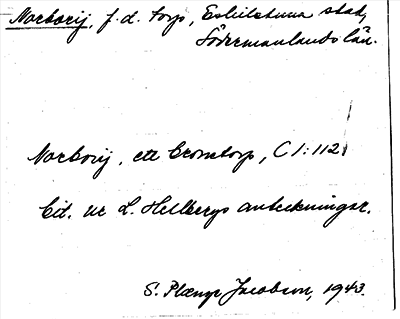 Norborij, f.d. torp, Eskilstuna stad,
Södermanlands län.
Norborij, ett Cronotorp, C1:112.
Cit. ur L. Hellbergs anteckningar.
S. Jacobson, 1943.